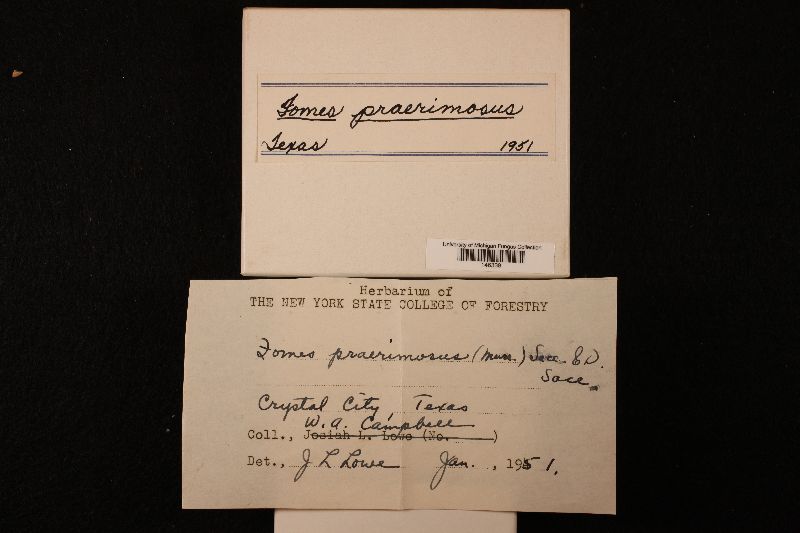 Fomes praerimosus
Texas 1951
University of Michigan Fungus Collection
Herbarium of
THE NEW YORK STATE COLLEGE OF FORESTRY
Fomes praerimosus (Murr.) Sacc & D.
Sacc.
Crystal City, Texas
W. A. Campbell
Coll., Josiah L. Lowe (No. )
Det., J L Lowe Jan., 1951.